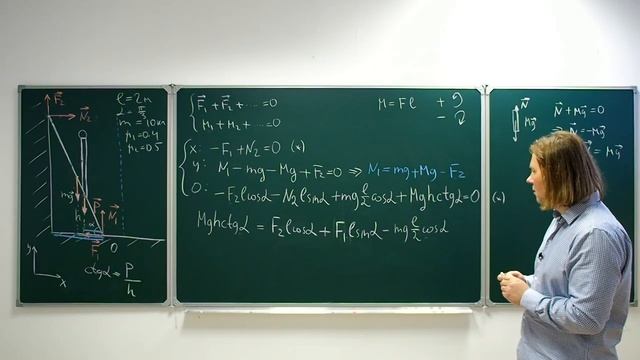 F₂
N₂
l = 2м
α = π/3
m = 10кг
μ₁ = 0.4
μ₂ = 0.5
mg
h
α
N₁
F₁
O
y
x
ctgα = P/h
F₁ + F₂ + ... = 0
M₁ + M₂ + ... = 0
M = Fl
+
-
x: -F₁ + N₂ = 0 (*)
y: N₁ - mg - Mg + F₂ = 0 ⇒ N₁ = mg + Mg - F₂
O: -F₂lcosα - N₂lsinα + mg l/2 cosα + Mghctgα = 0 (*)
Mghctgα = F₂lcosα + F₁lsinα - mg l/2 cosα
N
Mg
N + Mg = 0
⇒ N = -Mg
= Mg